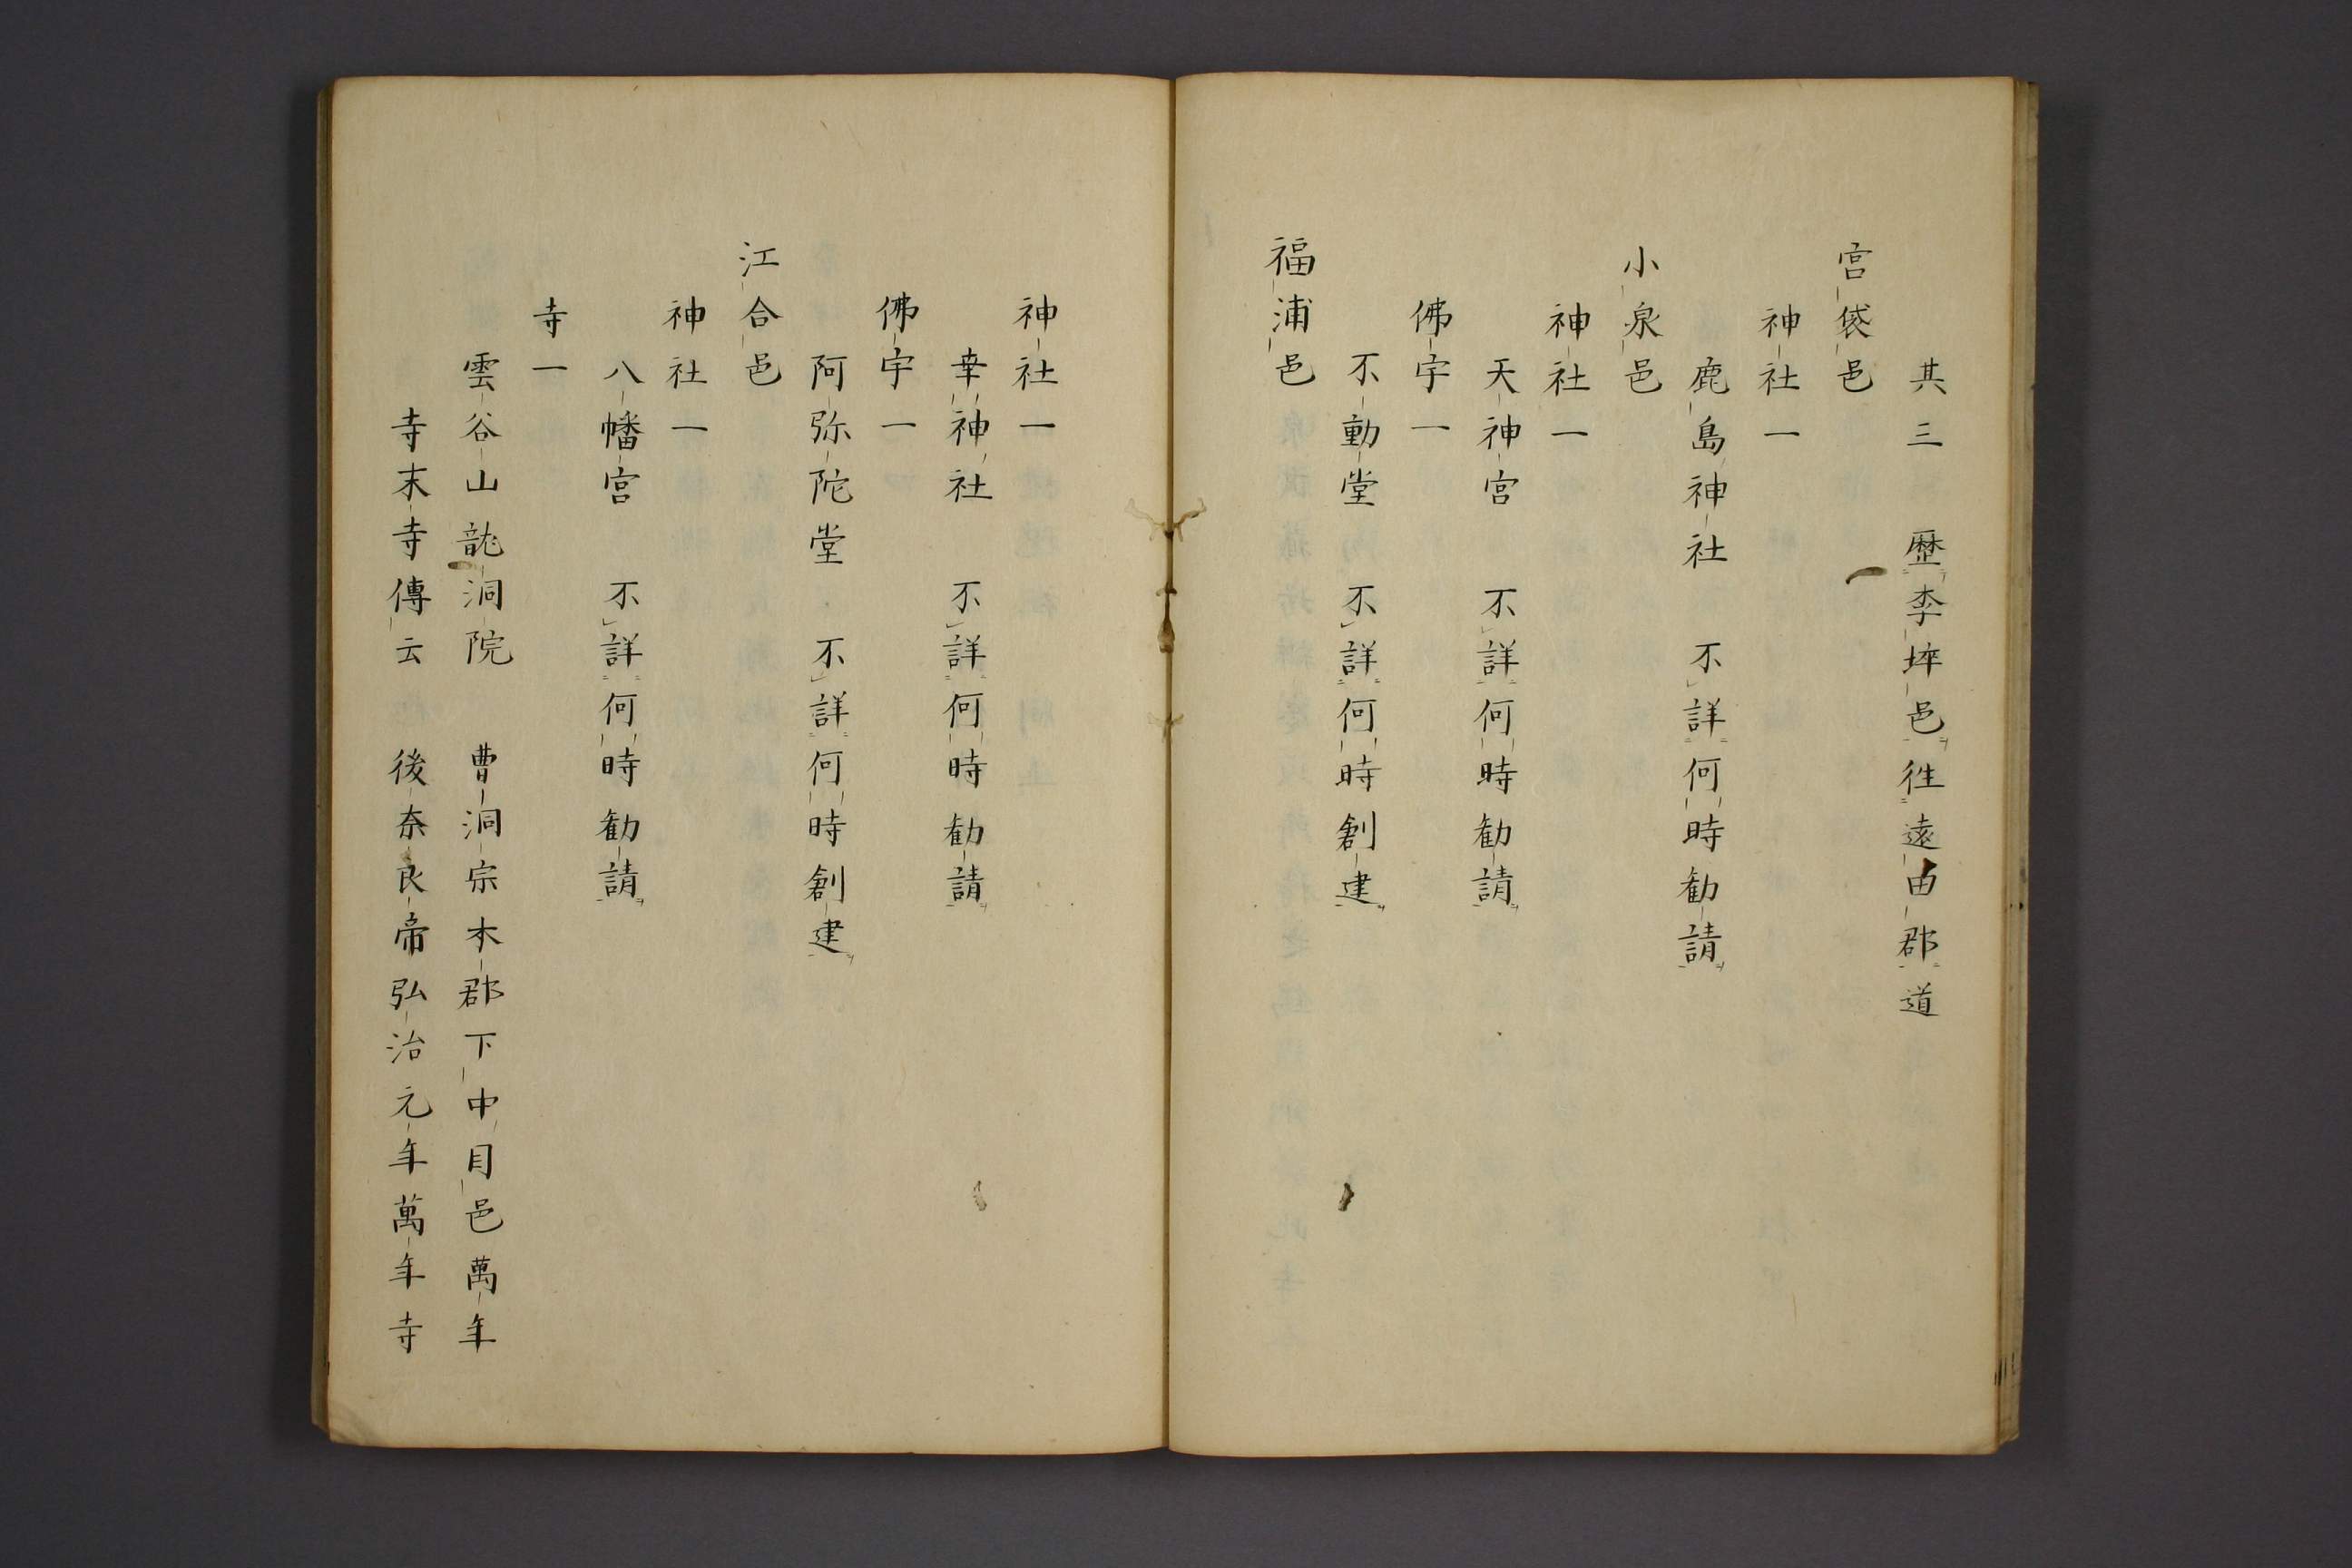 其三 歴李埣邑徃遠田郡道
宮袋邑
神社一
鹿島神社 不詳何時勧請
小泉邑
神社一
天神宮 不詳何時勧請
佛宇一
不動堂 不詳何時創建
福浦邑
神社一
幸神社 不詳何時勧請
佛宇一
阿弥陀堂 不詳何時創建
江合邑
神社一
八幡宮 不詳何時勧請
寺一
雲谷山龍洞院 曹洞宗本郡下中目邑萬年
寺末寺傳云 後奈良帝弘治元年萬年寺